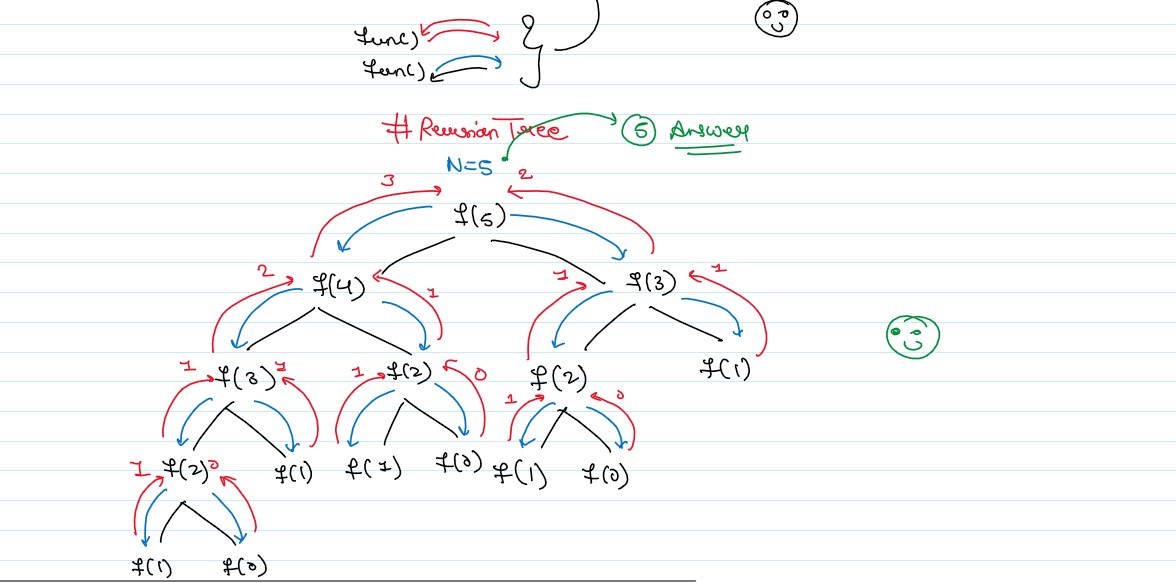 func()
func()
}
# Recursion Tree
5 Answer
N=5
3 2
f(5)
2 f(4) 1 1 f(3) 1
1 f(3) 1 1 f(2) 0 f(2) f(1)
1 0
1 f(2) 0 f(1) f(1) f(0) f(1) f(0)
f(1) f(0)